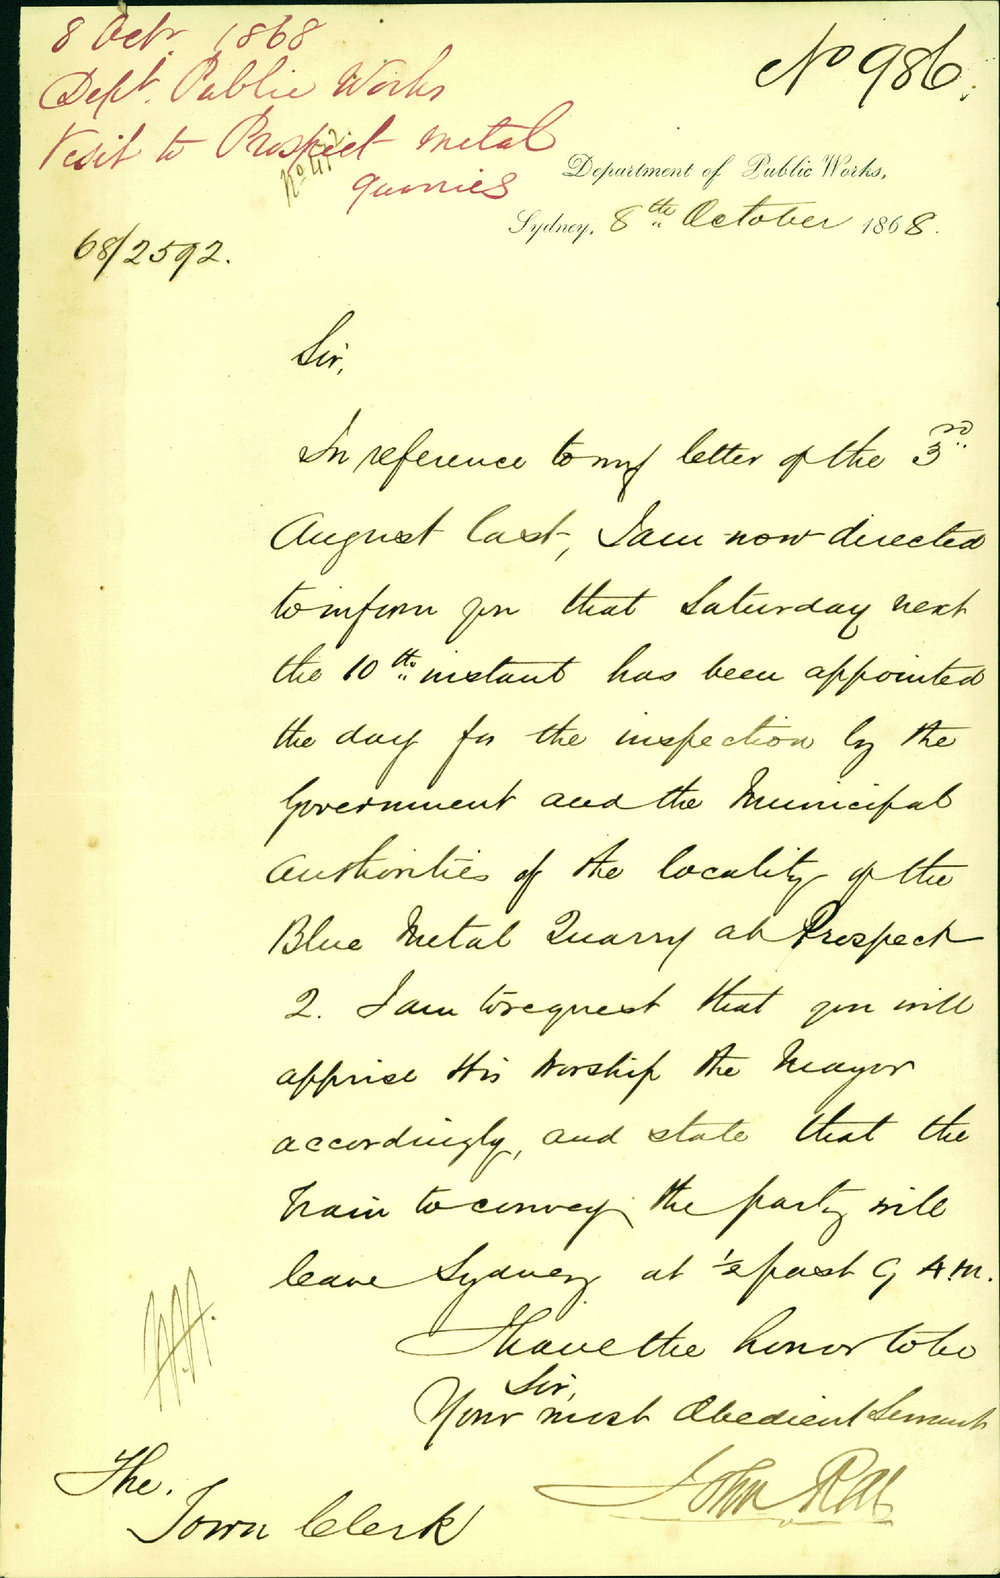 8 Octr. 1868
Dept. Public Works
Visit to Prospect metal
quarries
No 986.
Department of Public Works,
Sydney, 8th October 1868.
68/2592.
Sir,
In reference to my letter of the 3rd
August last, I am now directed
to inform you that Saturday next
the 10th instant has been appointed
the day for the inspection by the
Government and the Municipal
Authorities of the locality of the
Blue Metal Quarry at Prospect
2. I am to request that you will
apprise His Worship the Mayor
accordingly, and state that the
train to convey the party will
leave Sydney at ½ past 9 A.M.
I have the honor to be
Sir,
Your most Obedient Servant
John Rae
The
Town Clerk